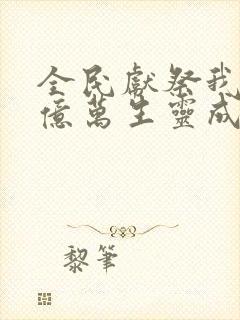 全民獻祭我
億萬生靈成
黎筆